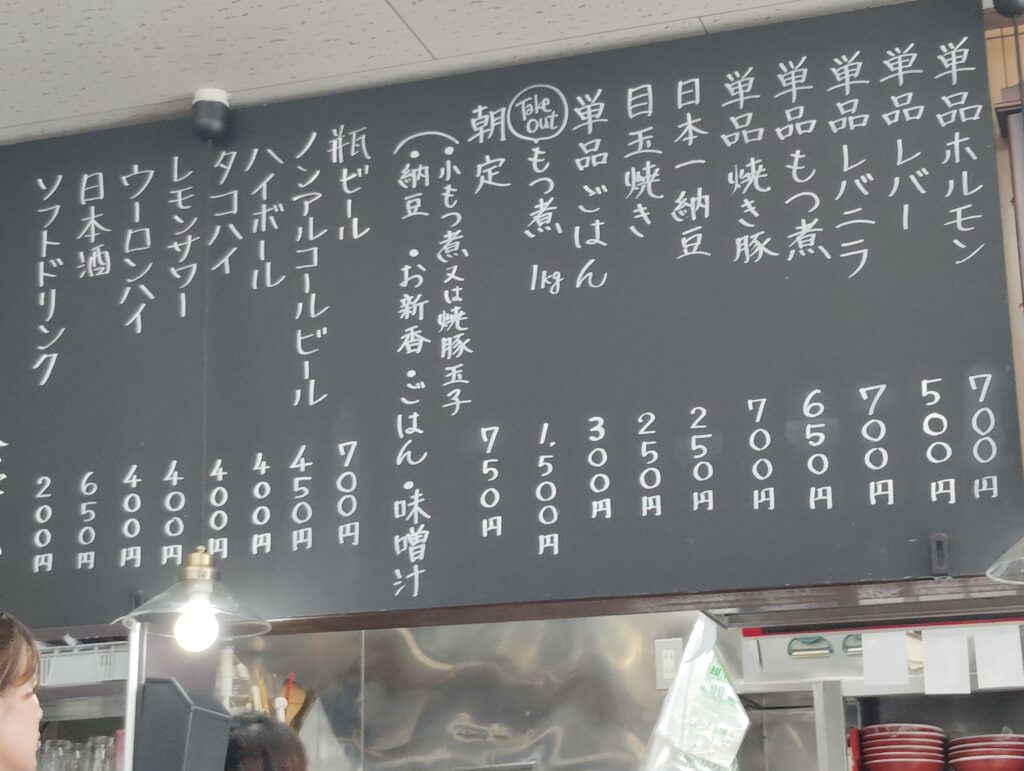 単品ホルモン 700円
単品レバー 500円
単品レバニラ 700円
単品もつ煮 650円
単品焼き豚 700円
日本一納豆 250円
目玉焼き 250円
単品ごはん 300円
Take Out もつ煮 1kg 1.500円
朝定 750円
(・小もつ煮又は焼豚玉子
・納豆 ・お新香 ・ごはん ・味噌汁
瓶ビール 700円
ノンアルコールビール 450円
ハイボール 400円
タコハイ 400円
レモンサワー 400円
ウーロンハイ 400円
日本酒 650円
ソフトドリンク 200円